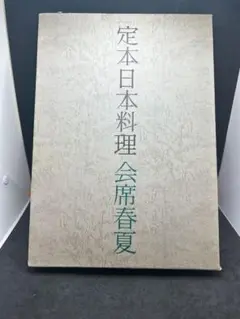 定本日本料理 会席春夏